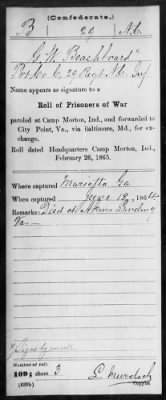 (Confederate.)
B 29 N.C.
G. W. Beachboard x
Pvt Co. C, 29 Regt N.C. Inf.
Name appears as signature to a
Roll of Prisoners of War
paroled at Camp Morton, Ind., and forwarded to
City Point, Va., via Baltimore, Md., for ex-
change.
Roll dated Headquarters Camp Morton, Ind.,
February 26, 1865.
Where captured Marietta Ga
When captured June 18, 1864
Remarks: Died at Akens Landing
Va
x Signs by mark
Number of roll:
109; sheet 3
(639b) Copyist.